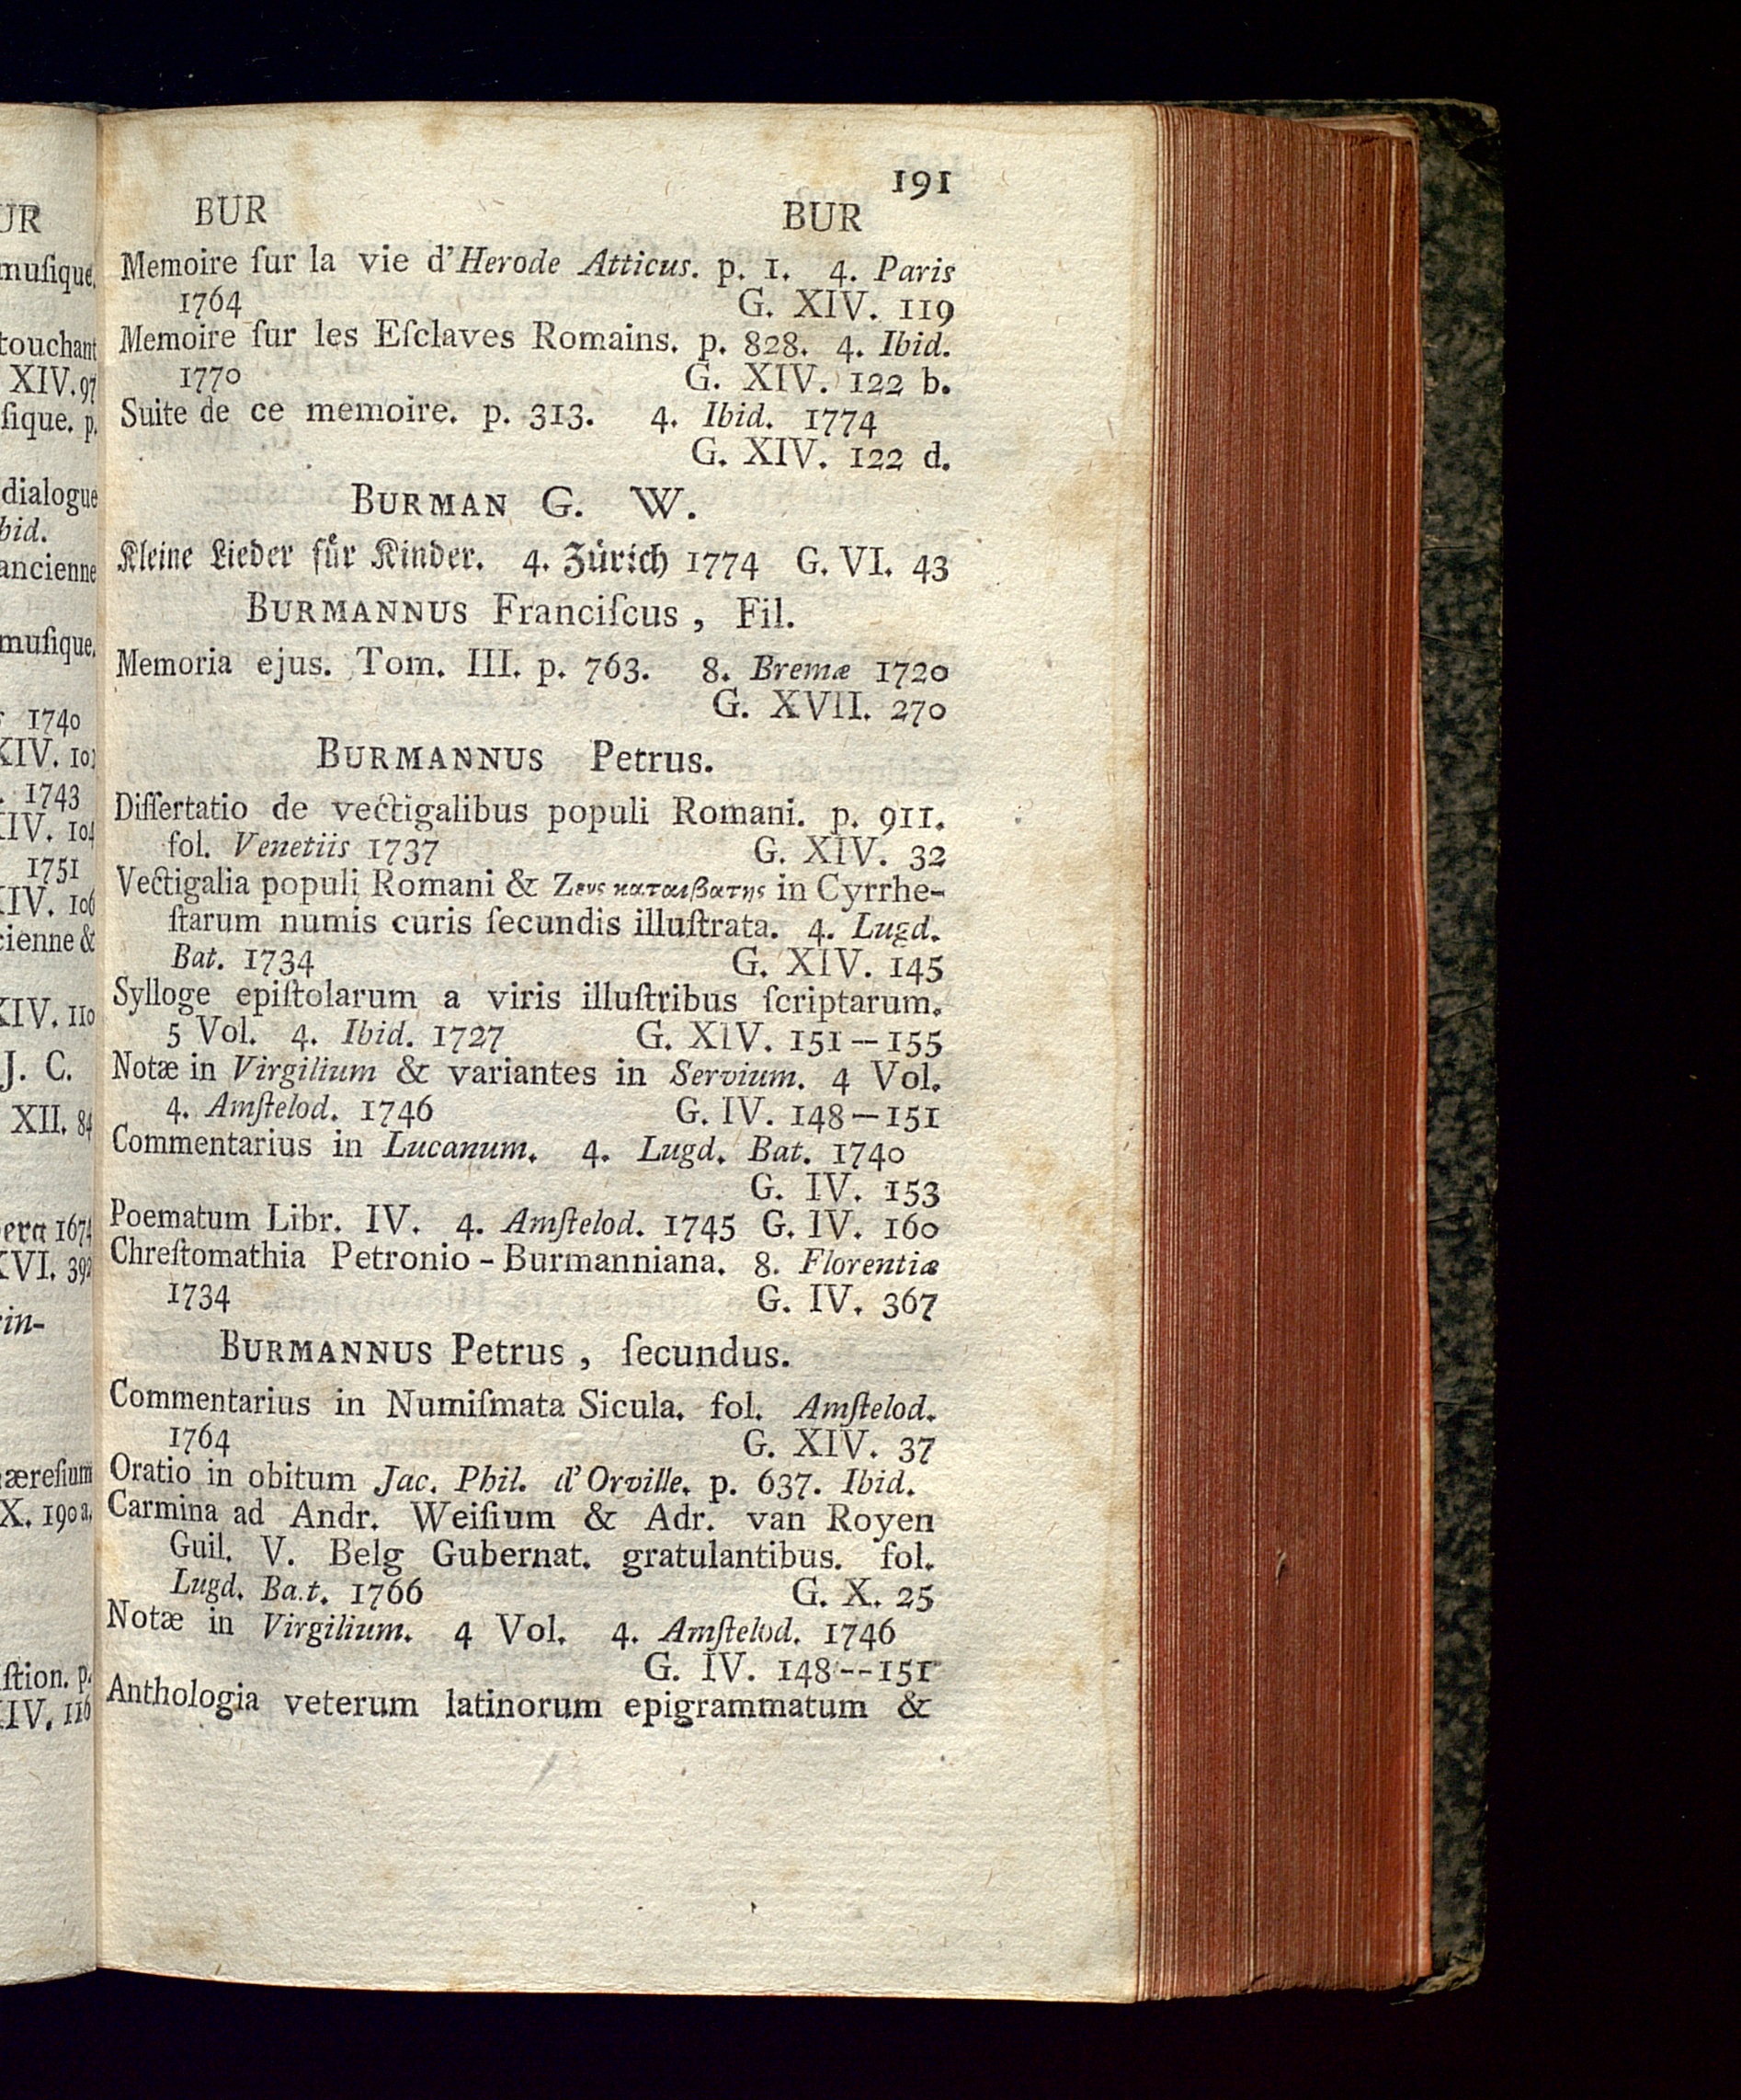 191
BUR BUR
Memoire ſur la vie d'Herode Atticus. p. 1. 4. Paris
1764 G. XIV. 119
Memoire ſur les Eſclaves Romains. p. 828. 4. Ibid.
1770 G. XIV. 122 b.
Suite de ce memoire. p. 313. 4. Ibid. 1774
G. XIV. 122 d.
BURMAN G. W.
Kleine Lieder für Kinder. 4. Zürich 1774 G. VI. 43
BURMANNUS Franciſcus, Fil.
Memoria ejus. Tom. III. p. 763. 8. Bremæ 1720
G. XVII. 270
BURMANNUS Petrus.
Diſſertatio de vectigalibus populi Romani. p. 911.
fol. Venetiis 1737 G. XIV. 32
Vectigalia populi Romani & Ζευς καταιβατης in Cyrrhe-
ſtarum numis curis ſecundis illuſtrata. 4. Lugd.
Bat. 1734 G. XIV. 145
Sylloge epiſtolarum a viris illuſtribus ſcriptarum.
5 Vol. 4. Ibid. 1727 G. XIV. 151—155
Notæ in Virgilium & variantes in Servium. 4 Vol.
4. Amſtelod. 1746 G. IV. 148—151
Commentarius in Lucanum. 4. Lugd. Bat. 1740
G. IV. 153
Poematum Libr. IV. 4. Amſtelod. 1745 G. IV. 160
Chreſtomathia Petronio-Burmanniana. 8. Florentiæ
1734 G. IV. 367
BURMANNUS Petrus, ſecundus.
Commentarius in Numiſmata Sicula. fol. Amſtelod.
1764 G. XIV. 37
Oratio in obitum Jac. Phil. d'Orville. p. 637. Ibid.
Carmina ad Andr. Weiſium & Adr. van Royen
Guil. V. Belg Gubernat. gratulantibus. fol.
Lugd. Ba.t. 1766 G. X. 25
Notæ in Virgilium. 4 Vol. 4. Amſtelod. 1746
G. IV. 148--151
Anthologia veterum latinorum epigrammatum &